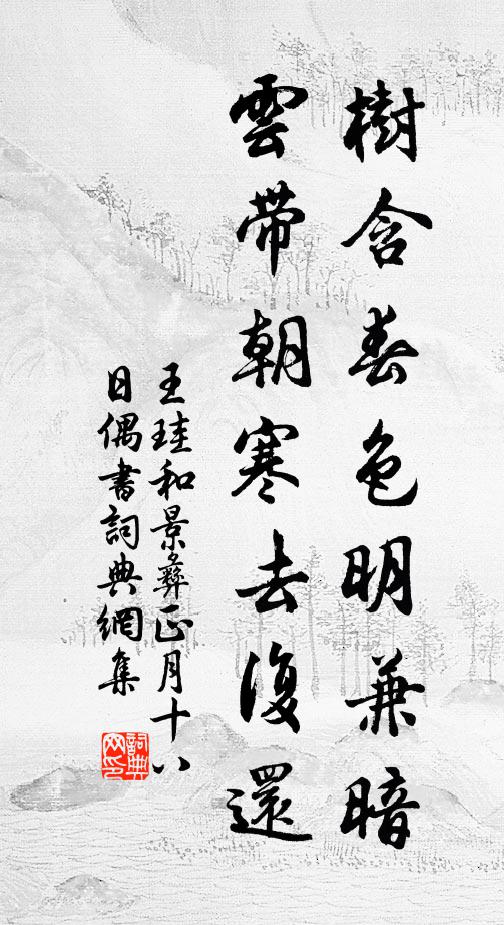 樹含春色明兼暗
雲帶朝寒去復還
王珪和景彝正月十八
日偶書詞典網集
詞典網印